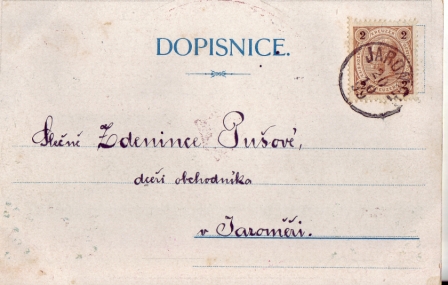 DOPISNICE.
2 2
JAROM
Slečně Zdenince Pušové,
dceři obchodníka
v Jaroměři.